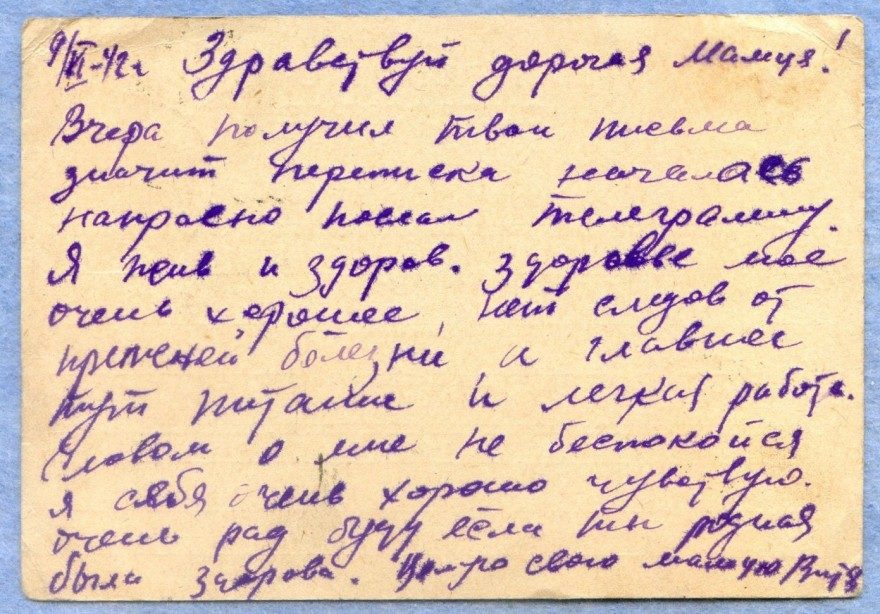 9/XI-42г. Здравствуй дорогая Мамуя!
Вчера получил твои письма
значит переписка началась
напрасно послал телеграмму.
Я жив и здоров. Здоровье мое
очень хорошее, нет следов от
прежней болезни а главное
тут питание и легкая работа.
Словом о мне не беспокойся
я себя очень хорошо чувствую.
очень рад буду если ты родная
была здорова. Целую свою мамую Витя